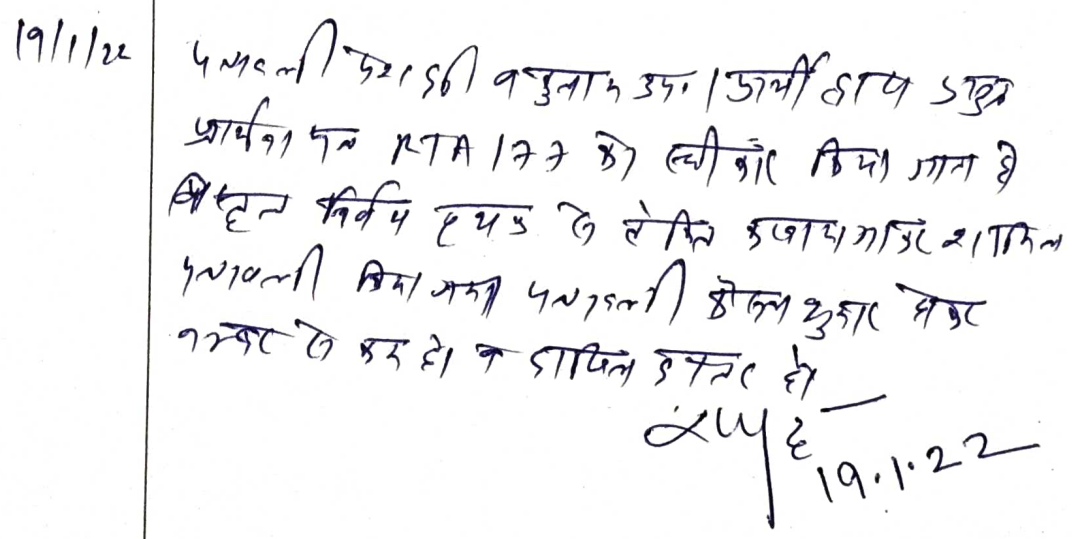 19/1/22
पत्रावली पेश हुई वकुलाय उप. । प्रार्थी द्वारा प्रस्तुत
प्रार्थना पत्र RTA 177 को स्वीकार किया जाता है
विस्तृत निर्णय पृथक से लिखाया जाकर शामिल
पत्रावली किया गया पत्रावली फैसल शुमार होकर
नम्बर से कम हो व दाखिल दफ्तर हो
19.1.22